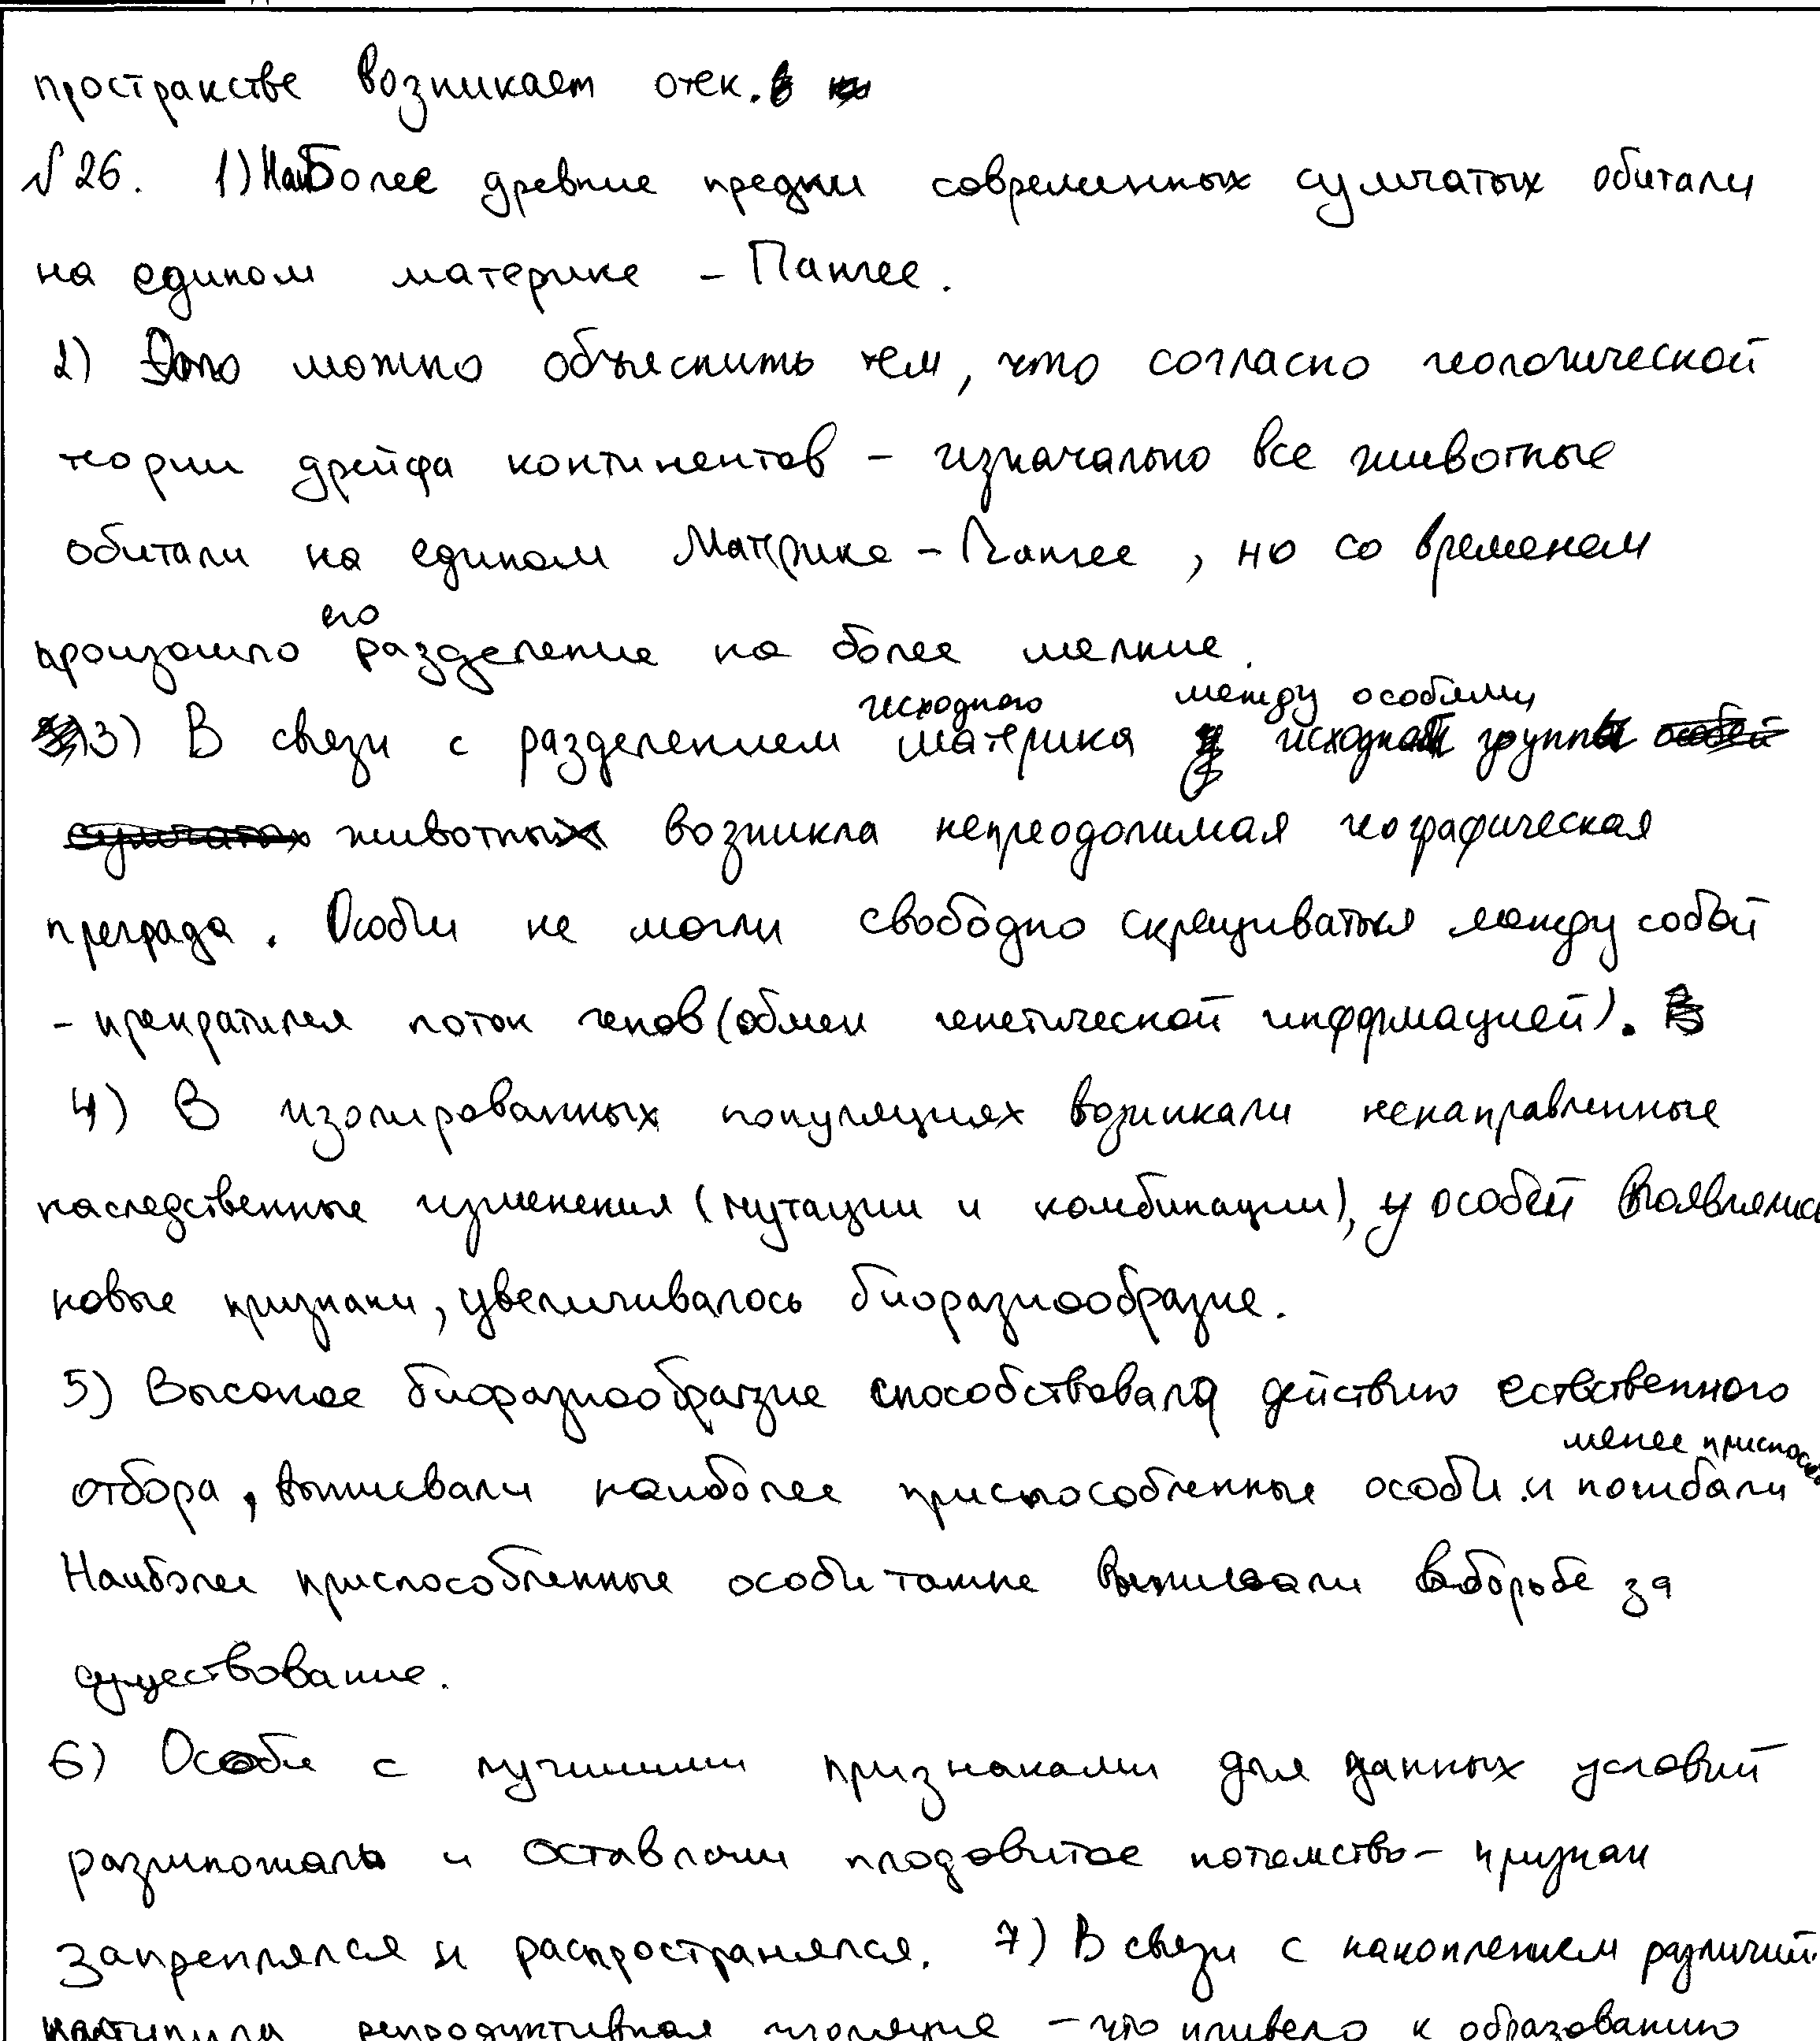 пространстве возникает отек.
№26. 1) Наиболее древние предки современных сумчатых обитали
на едином материке – Пангее.
2) Это можно объяснить тем, что согласно геологической
теории дрейфа континентов – изначально все животные
обитали на едином Материке – Пангее, но со временем
произошло его разделение на более мелкие.
3) В связи с разделением исходного материка между особями исходной группы
животных возникла непреодолимая географическая
преграда. Особи не могли свободно скрещиваться между собой
– прекратился поток генов (обмен генетической информацией).
4) В изолированных популяциях возникали ненаправленные
наследственные изменения (мутации и комбинации), у особей появлялись
новые признаки, увеличивалось биоразнообразие.
5) Высокое биоразнообразие способствовало действию естественного
отбора, выживали наиболее приспособленные особи и погибали менее приспособ
Наиболее приспособленные особи также выживали в борьбе за
существование.
6) Особи с лучшими признаками для данных условий
размножались и оставляли плодовитое потомство – признак
закреплялся и распространялся. 7) В связи с накоплением различий
наступила репродуктивная изоляция – что привело к образованию